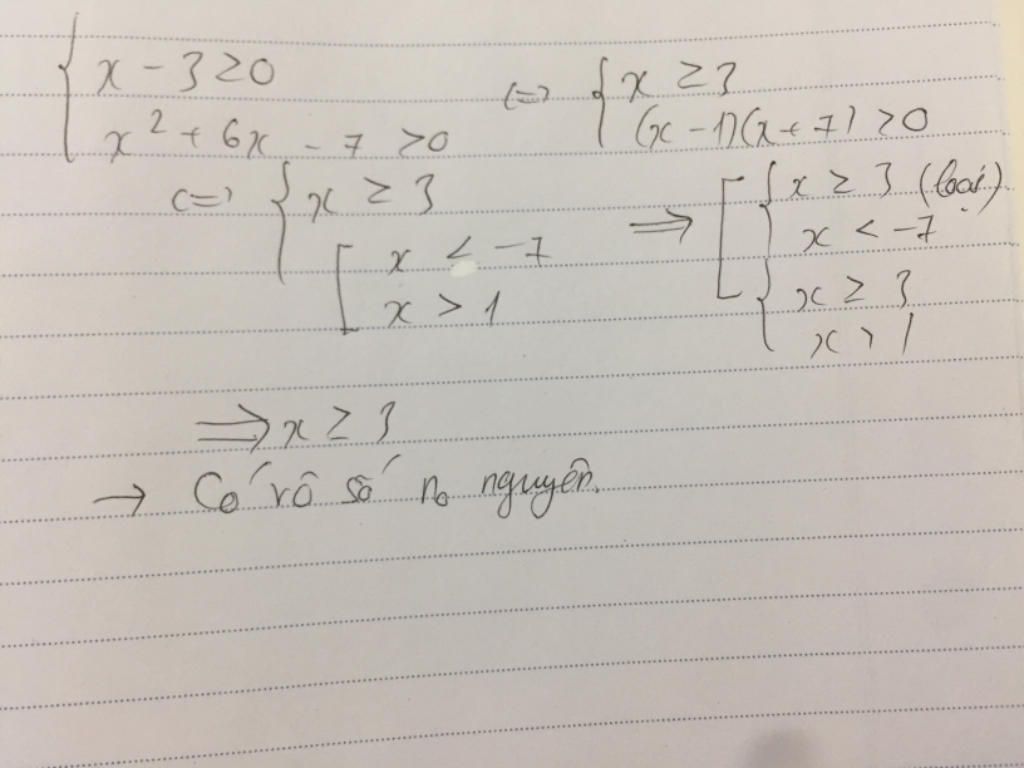 { x - 3 ≥ 0
x² + 6x - 7 > 0
(=) { x ≥ 3
(x - 1)(x + 7) > 0
(=) { x ≥ 3
[ x < -7
x > 1
⟹ [ { x ≥ 3 (loại)
x < -7
{ x ≥ 3
x > 1
⟹ x ≥ 3
→ Có vô số no nguyên.